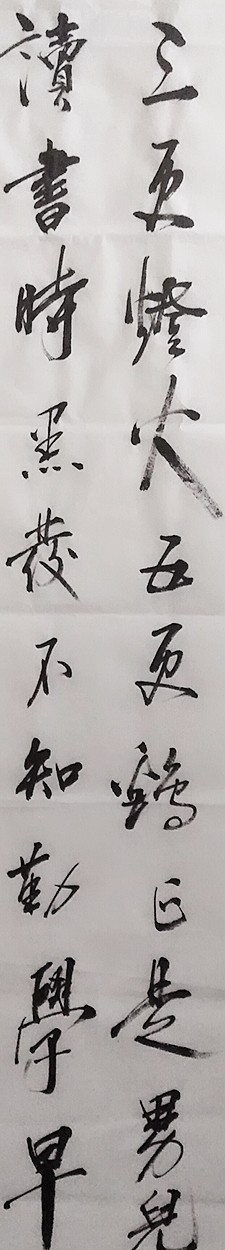 三更燈火五更鷄正是男兒
讀書時黑發不知勤學早